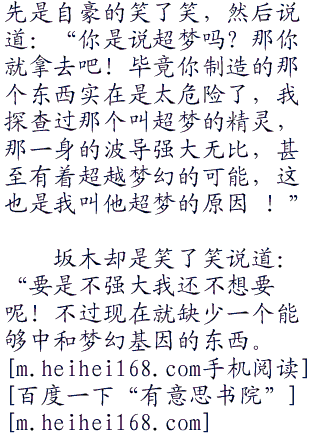 先是自豪的笑了笑，然后说
道：“你是说超梦吗？那你
就拿去吧！毕竟你制造的那
个东西实在是太危险了，我
探查过那个叫超梦的精灵，
那一身的波导强大无比，甚
至有着超越梦幻的可能，这
也是我叫他超梦的原因 ！”
坂木却是笑了笑说道：
“要是不强大我还不想要
呢！不过现在就缺少一个能
够中和梦幻基因的东西。
[m.heihei168.com手机阅读]
[百度一下“有意思书院”]
[m.heihei168.com]